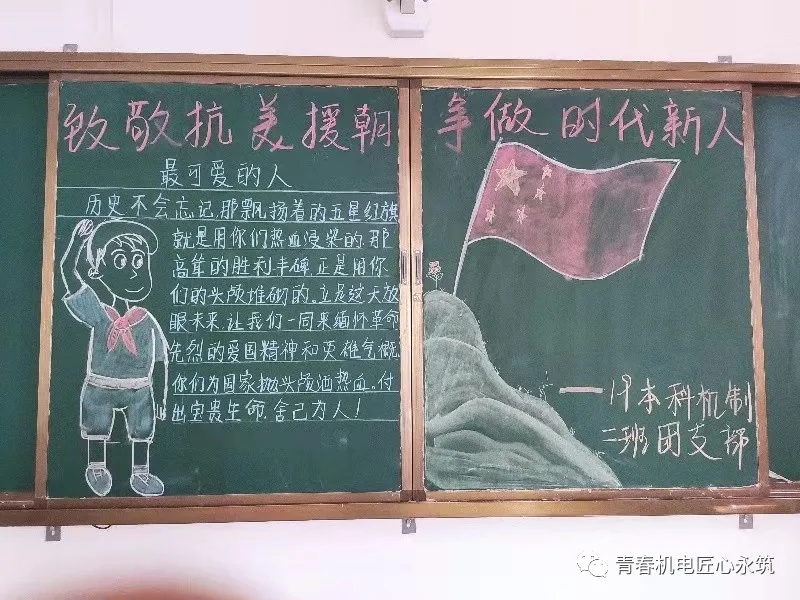 致敬抗美援朝
争做时代新人
最可爱的人
历史不会忘记,那飘扬着的五星红旗
就是用你们热血浸染的,那
高耸的胜利丰碑,正是用你
们的头颅堆砌的。立足这天放
眼未来,让我们一同来缅怀革命
先烈的爱国精神和英雄气概。
你们为国家抛头颅洒热血。付
出宝贵生命,舍己为人!
一19本科机制
二班团支部
青春机电匠心永筑